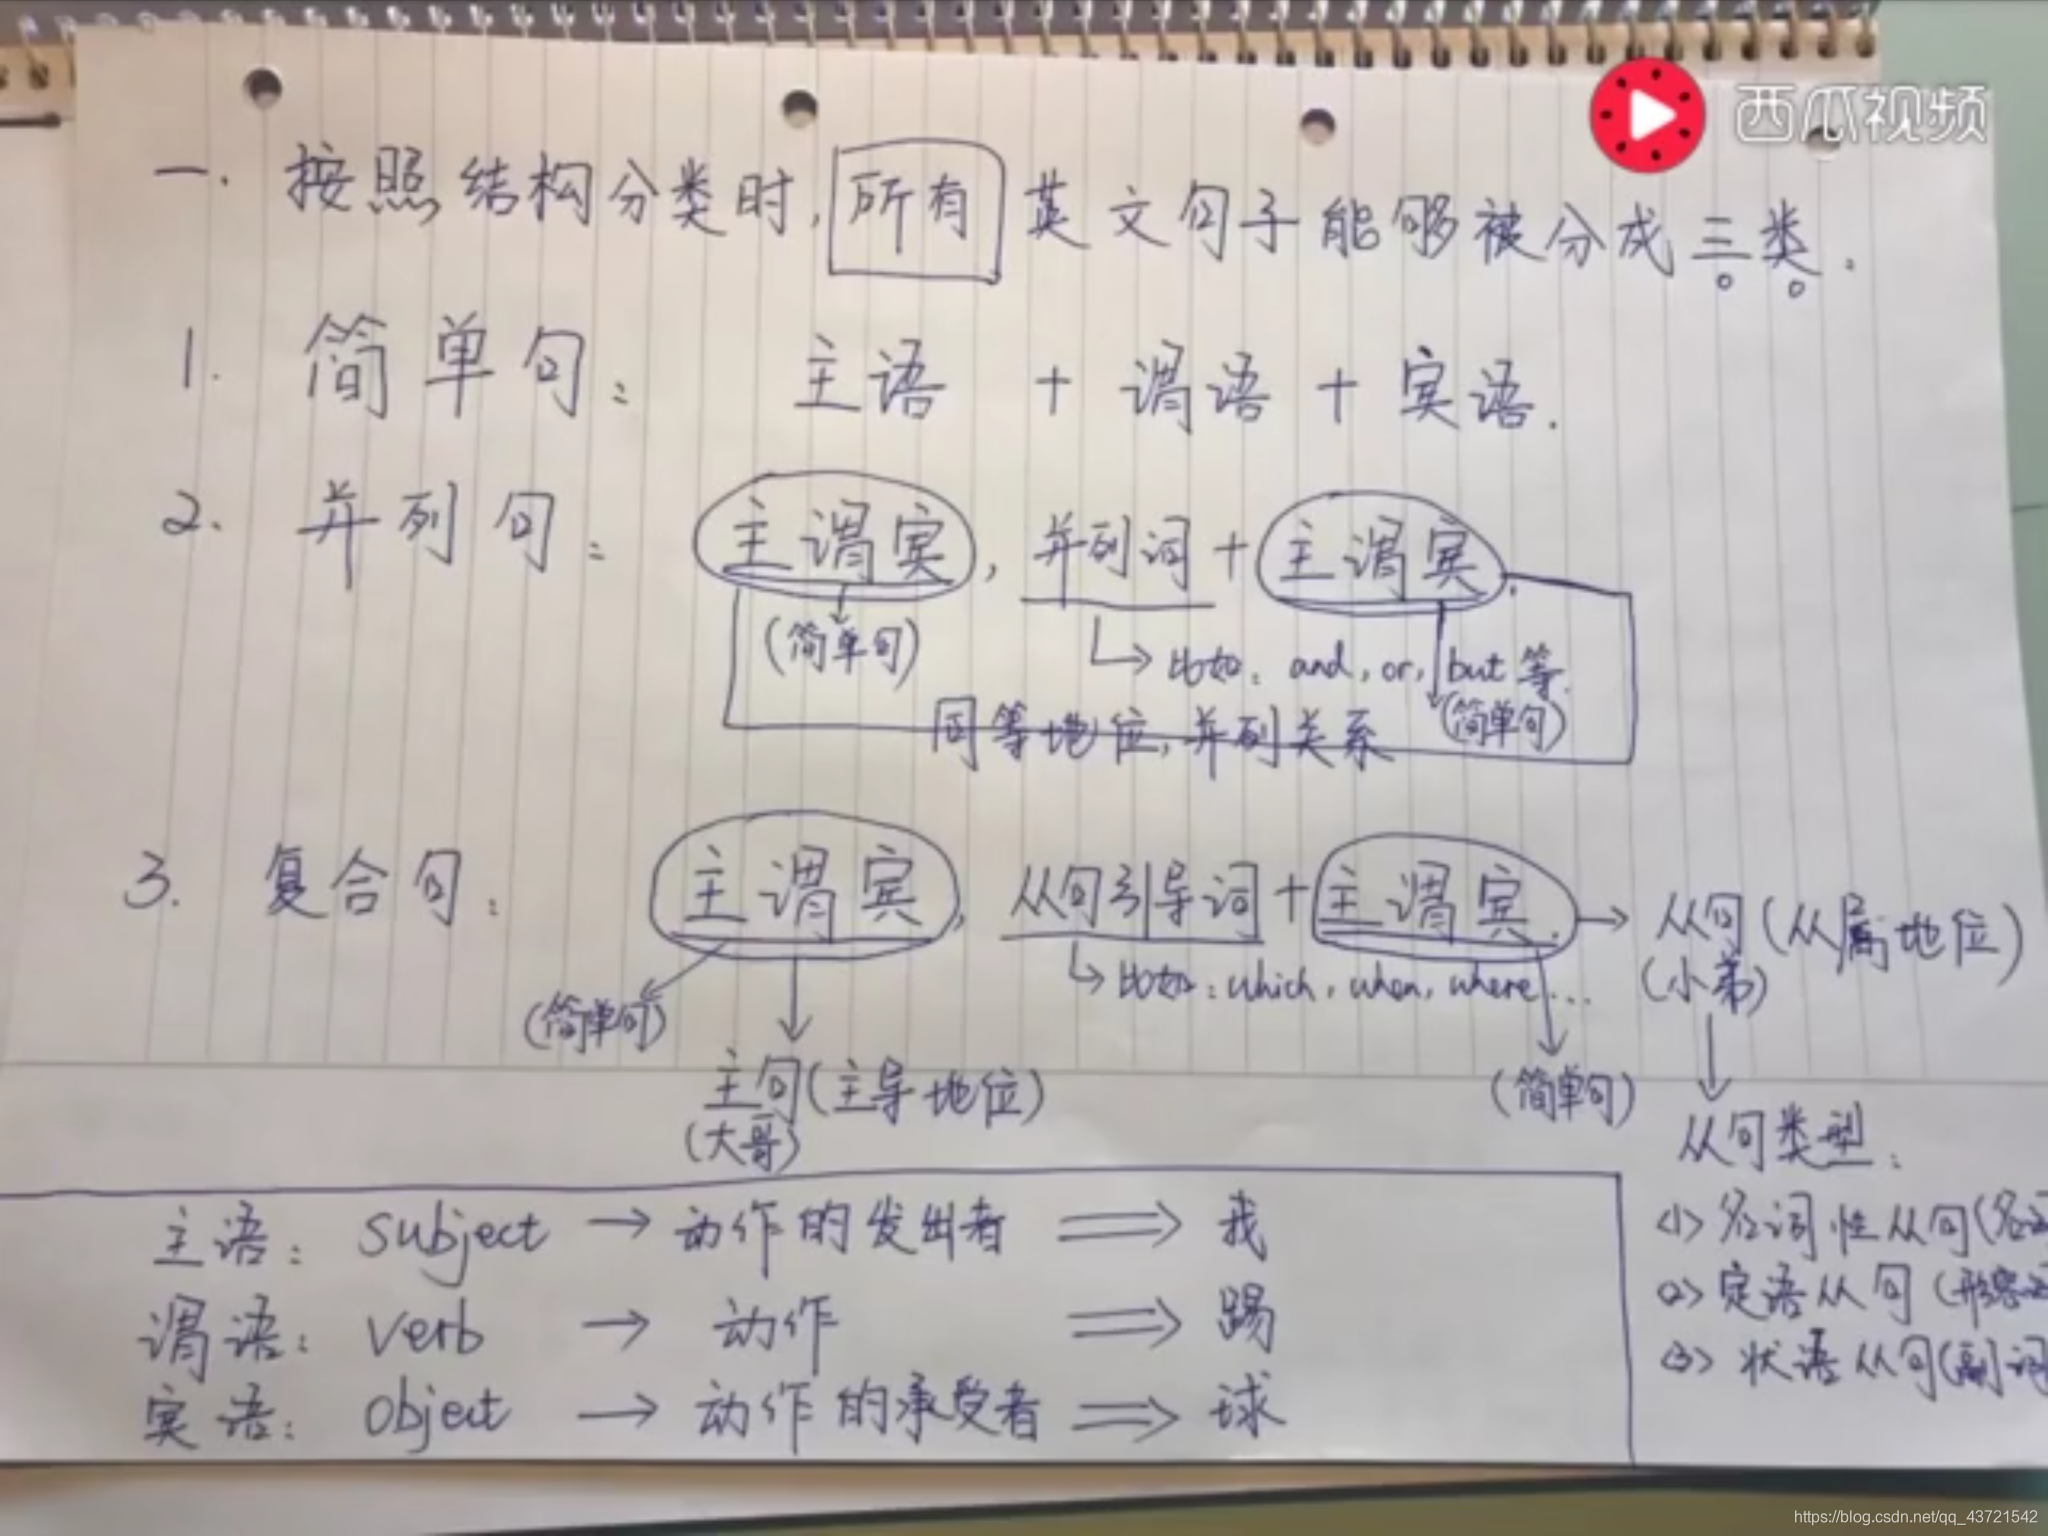 西瓜视频
一. 按照结构分类时, 所有 英文句子能够被分成三类:
1. 简单句: 主语 + 谓语 + 宾语.
2. 并列句: 主谓宾, 并列词 + 主谓宾.
(简单句)
比如: and, or, but 等.
(简单句)
同等地位, 并列关系
3. 复合句: 主谓宾, 从句引导词 + 主谓宾. → 从句 (从属地位)
(小弟)
比如: which, when, where...
(简单句)
主句 (主导地位)
(大哥)
(简单句)
从句类型:
主语: subject → 动作的发出者 ⟹ 我
<1> 名词性从句(名词
谓语: verb → 动作 ⟹ 踢
<2> 定语从句 (形容词
宾语: object → 动作的承受者 ⟹ 球
<3> 状语从句(副词
https://blog.csdn.net/qq_43721542